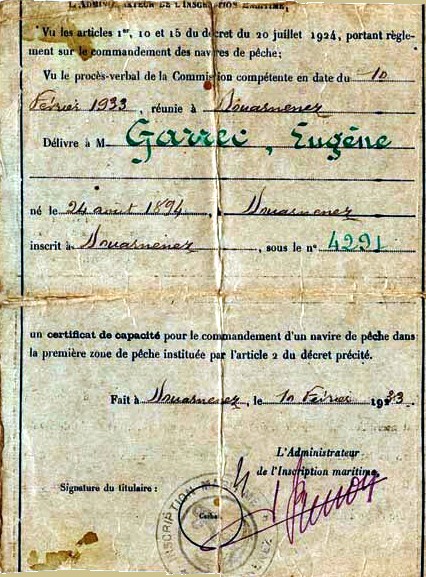 L'ADMINISTRATEUR DE L'INSCRIPTION MARITIME,
Vu les articles 1er, 10 et 15 du décret du 20 juillet 1924, portant règle-
ment sur le commandement des navires de pêche;
Vu le procès-verbal de la Commission compétente en date du 10
Février 1933, réunie à Douarnenez
Délivre à M. Garrec, Eugène
né le 24 août 1894, à Douarnenez
inscrit à Douarnenez, sous le n° 4291
un certificat de capacité pour le commandement d'un navire de pêche dans
la première zone de pêche instituée par l'article 2 du décret précité.
Fait à Douarnenez, le 10 Février 1933.
L'Administrateur
de l'Inscription maritime,
Signature du titulaire :
Cachet
INSCRIPTION MARITIME